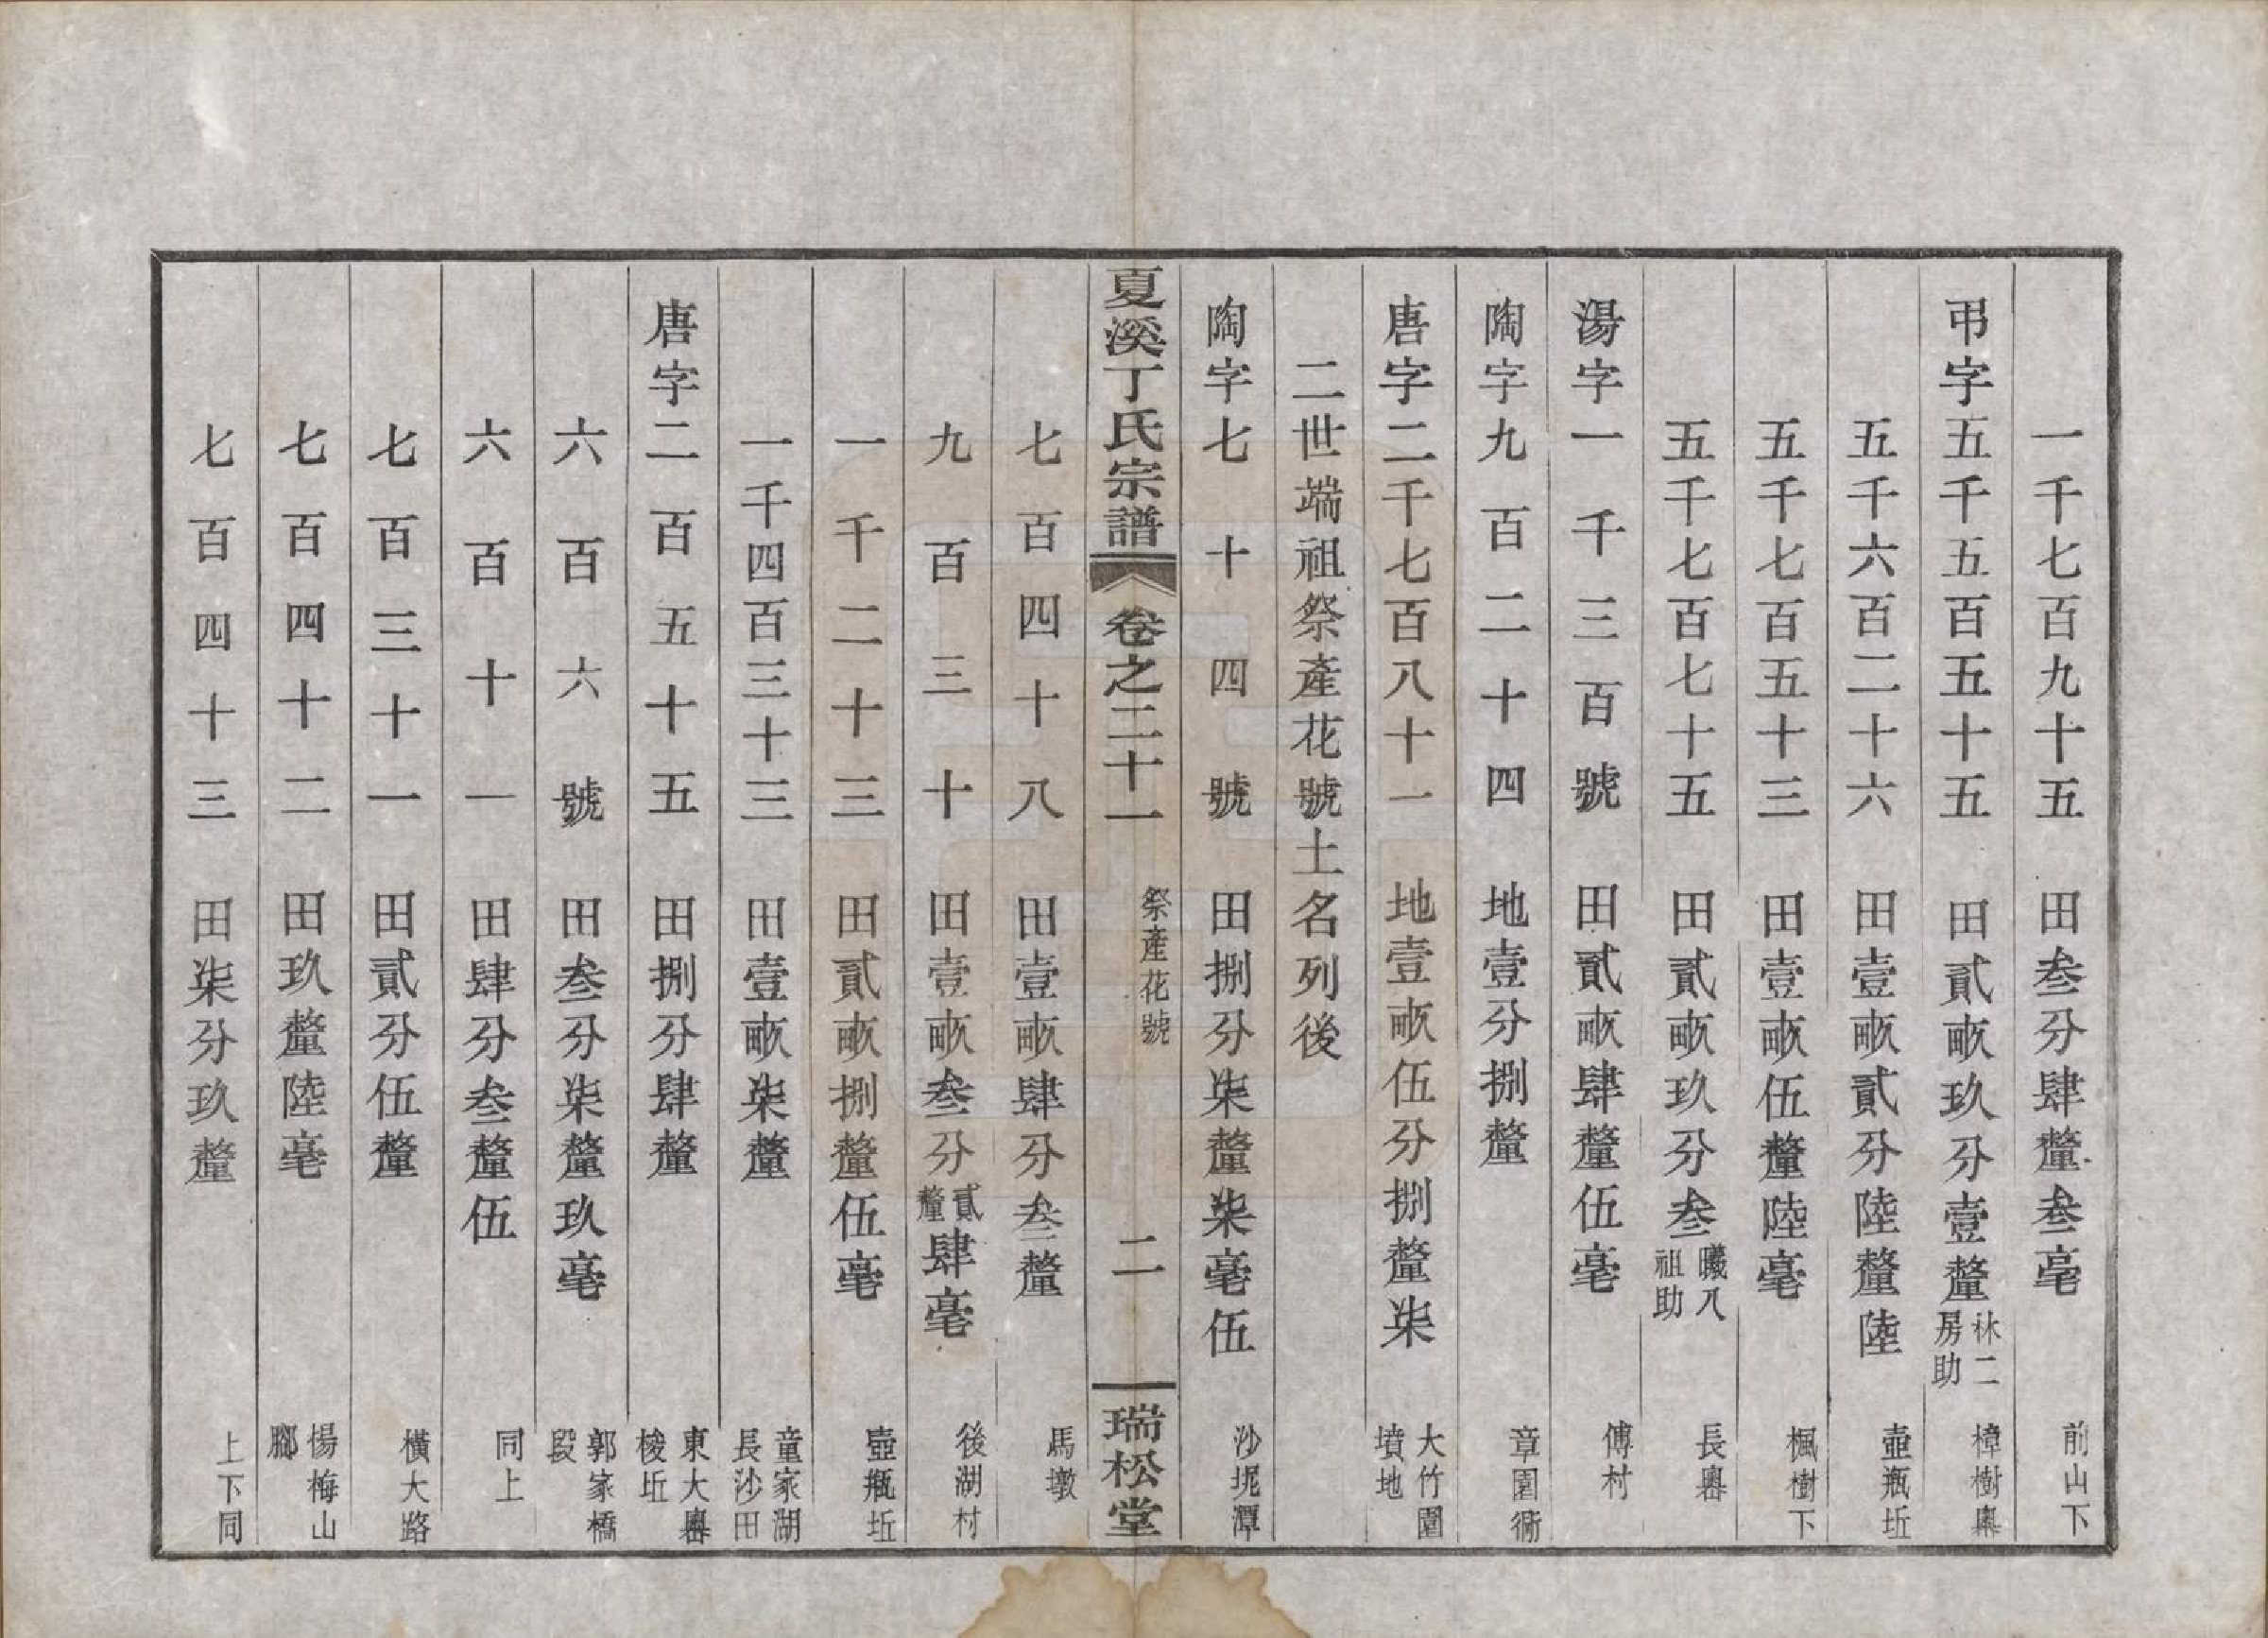 一千七百九十五　田叁分肆釐叁毫　前山下
弔字五千五百五十五　田貳畝玖分壹釐　袾二房助　樟樹㠗
五千六百二十六　田壹畝貳分陸釐陸　壺瓶坵
五千七百五十三　田壹畝伍釐陸毫　楓樹下
五千七百七十五　田貳畝玖分叁　曦八祖助　長㠗
湯字一千三百號　田貳畝肆釐伍毫　傅村
陶字九百二十四　地壹分捌釐　章園衕
唐字二千七百八十一　地壹畝伍分捌釐柒　大竹園墳地
二世端祖祭產花號土名列後
陶字七十四號　田捌分柒釐柒毫伍　沙坭潭
夏溪丁氏宗譜　卷之二十一　祭產花號　二　瑞松堂
七百四十八　田壹畝肆分叁釐　馬墩
九百三十　田壹畝叁分貳釐肆毫　後湖村
一千二十三　田貳畝捌釐伍毫　壺瓶坵
一千四百三十三　田壹畝柒釐　童家湖長沙田
唐字二百五十五　田捌分肆釐　東大㠗梭坵
六百六號　田叁分柒釐玖毫　郭家橋段
六百十一　田肆分叁釐伍　同上
七百三十一　田貳分伍釐　橫大路
七百四十二　田玖釐陸毫　楊梅山腳
七百四十三　田柒分玖釐　上下同